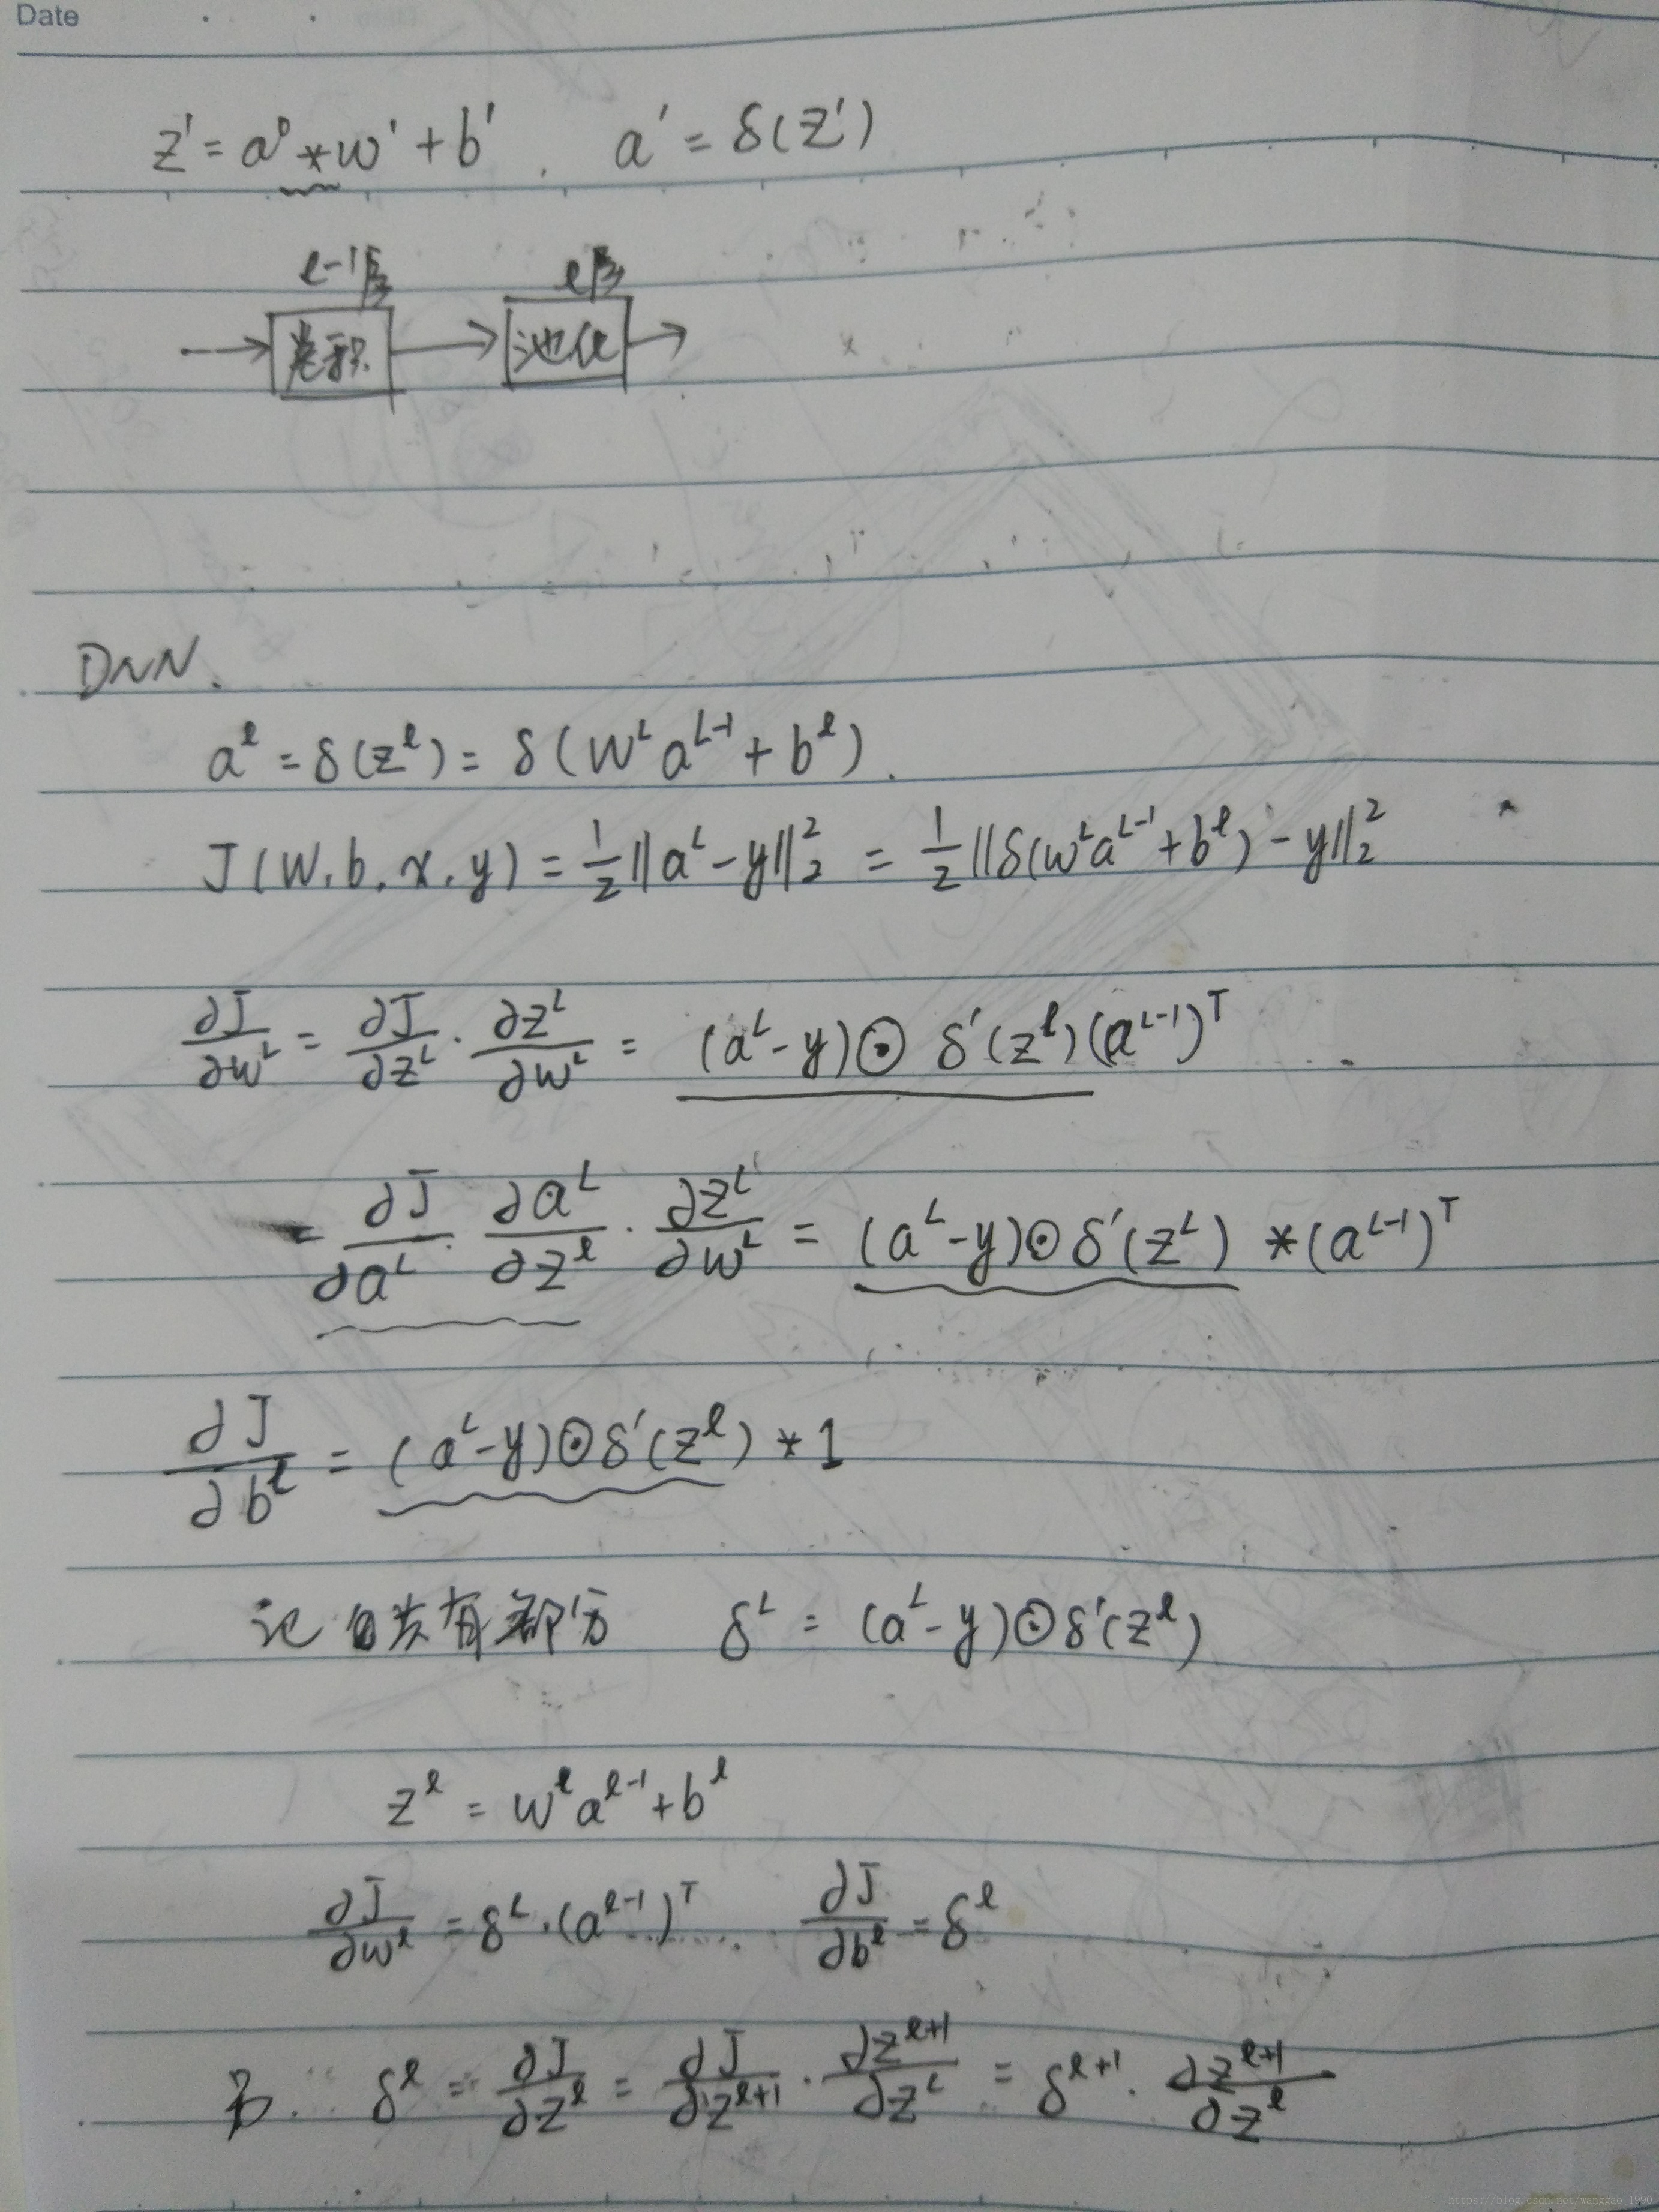 Date
z' = a⁰ * w' + b' , a' = δ(z')
l-1层 l层
卷积 池化
DNN.
aˡ = δ(zˡ) = δ(Wᴸ aᴸ⁻¹ + bˡ).
J(W, b, x, y) = 1/2 ||aᴸ - y||₂² = 1/2 ||δ(wᴸaᴸ⁻¹ + bˡ) - y||₂²
∂J/∂wᴸ = ∂J/∂zᴸ · ∂zᴸ/∂wᴸ = (aᴸ - y) ⊙ δ'(zˡ)(aᴸ⁻¹)ᵀ
= ∂J/∂aᴸ · ∂aᴸ/∂zˡ · ∂zᴸ/∂wᴸ = (aᴸ - y) ⊙ δ'(zᴸ) * (aᴸ⁻¹)ᵀ
∂J/∂bˡ = (aᴸ - y) ⊙ δ'(zˡ) * 1
记 共有部分 δᴸ = (aᴸ - y) ⊙ δ'(zˡ)
zˡ = wˡ aˡ⁻¹ + bˡ
∂J/∂wˡ = δᴸ · (aˡ⁻¹)ᵀ ∂J/∂bˡ = δˡ
δˡ = ∂J/∂zˡ = ∂J/∂zˡ⁺¹ · ∂zˡ⁺¹/∂zᴸ = δˡ⁺¹ · ∂zˡ⁺¹/∂zˡ